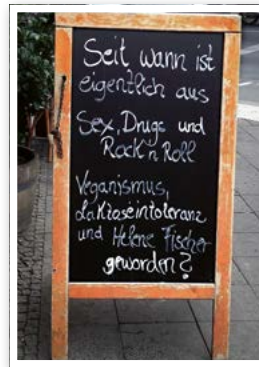 Seit wann ist
eigentlich aus
Sex, Drugs und
Rock'n Roll
Veganismus,
Laktoseintoleranz
und Helene Fischer
geworden?